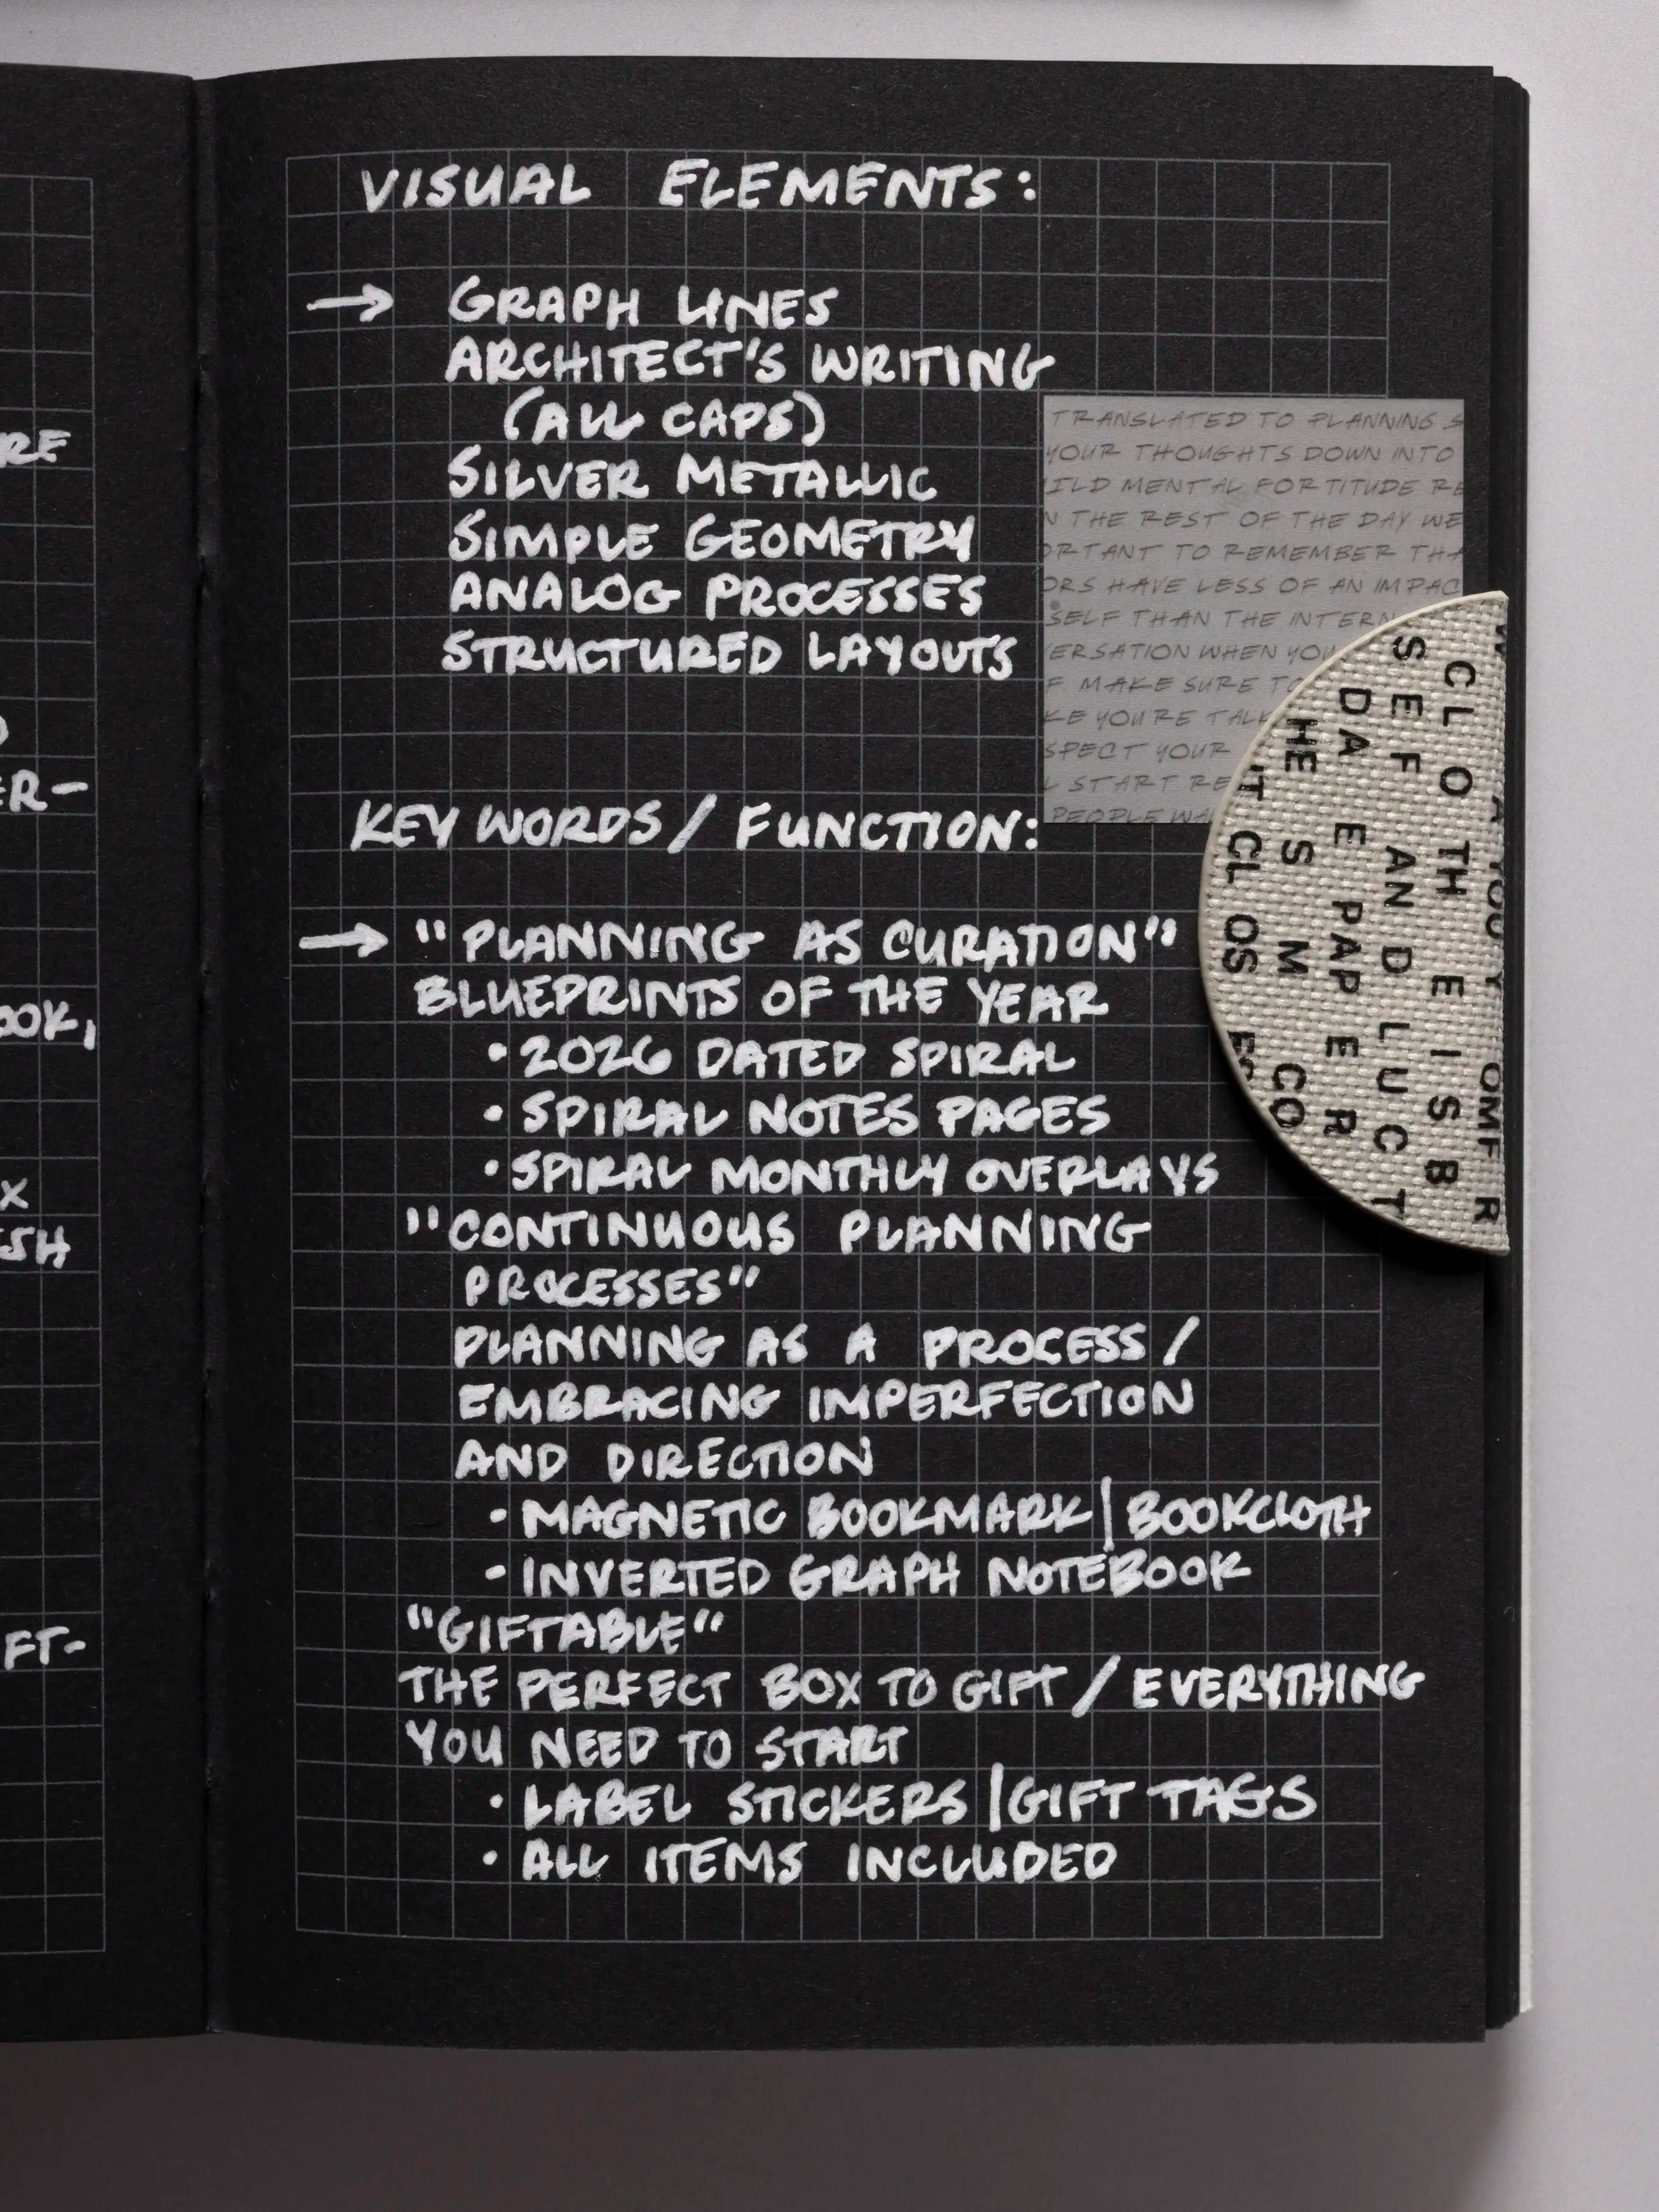 RE
ER-
OOK,
X
ESH
FT-
VISUAL ELEMENTS:
→ GRAPH LINES
ARCHITECT'S WRITING
(ALL CAPS)
SILVER METALLIC
SIMPLE GEOMETRY
ANALOG PROCESSES
STRUCTURED LAYOUTS
TRANSLATED TO PLANNING S
YOUR THOUGHTS DOWN INTO
ILD MENTAL FORTITUDE RE
N THE REST OF THE DAY WE
ORTANT TO REMEMBER THA
ORS HAVE LESS OF AN IMPAC
SELF THAN THE INTERN
ERSATION WHEN YOU
F. MAKE SURE TO
KE YOURE TALK
SPECT YOUR
L START RE
PEOPLE WA
KEY WORDS / FUNCTION:
→ "PLANNING AS CURATION"
BLUEPRINTS OF THE YEAR
• 2026 DATED SPIRAL
• SPIRAL NOTES PAGES
• SPIRAL MONTHLY OVERLAYS
"CONTINUOUS PLANNING
PROCESSES"
PLANNING AS A PROCESS /
EMBRACING IMPERFECTION
AND DIRECTION
• MAGNETIC BOOKMARK | BOOKCLOTH
• INVERTED GRAPH NOTEBOOK
"GIFTABLE"
THE PERFECT BOX TO GIFT / EVERYTHING
YOU NEED TO START
• LABEL STICKERS | GIFT TAGS
• ALL ITEMS INCLUDED
CL O TH E IS B
SEF AND LUCT
DA E PAPER
HE S M CO
IT CL OS ES